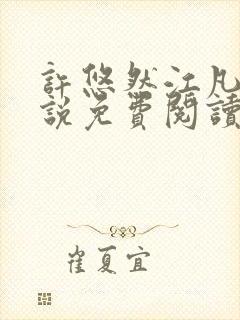 許悠然江凡
說免費閱讀
崔夏宜